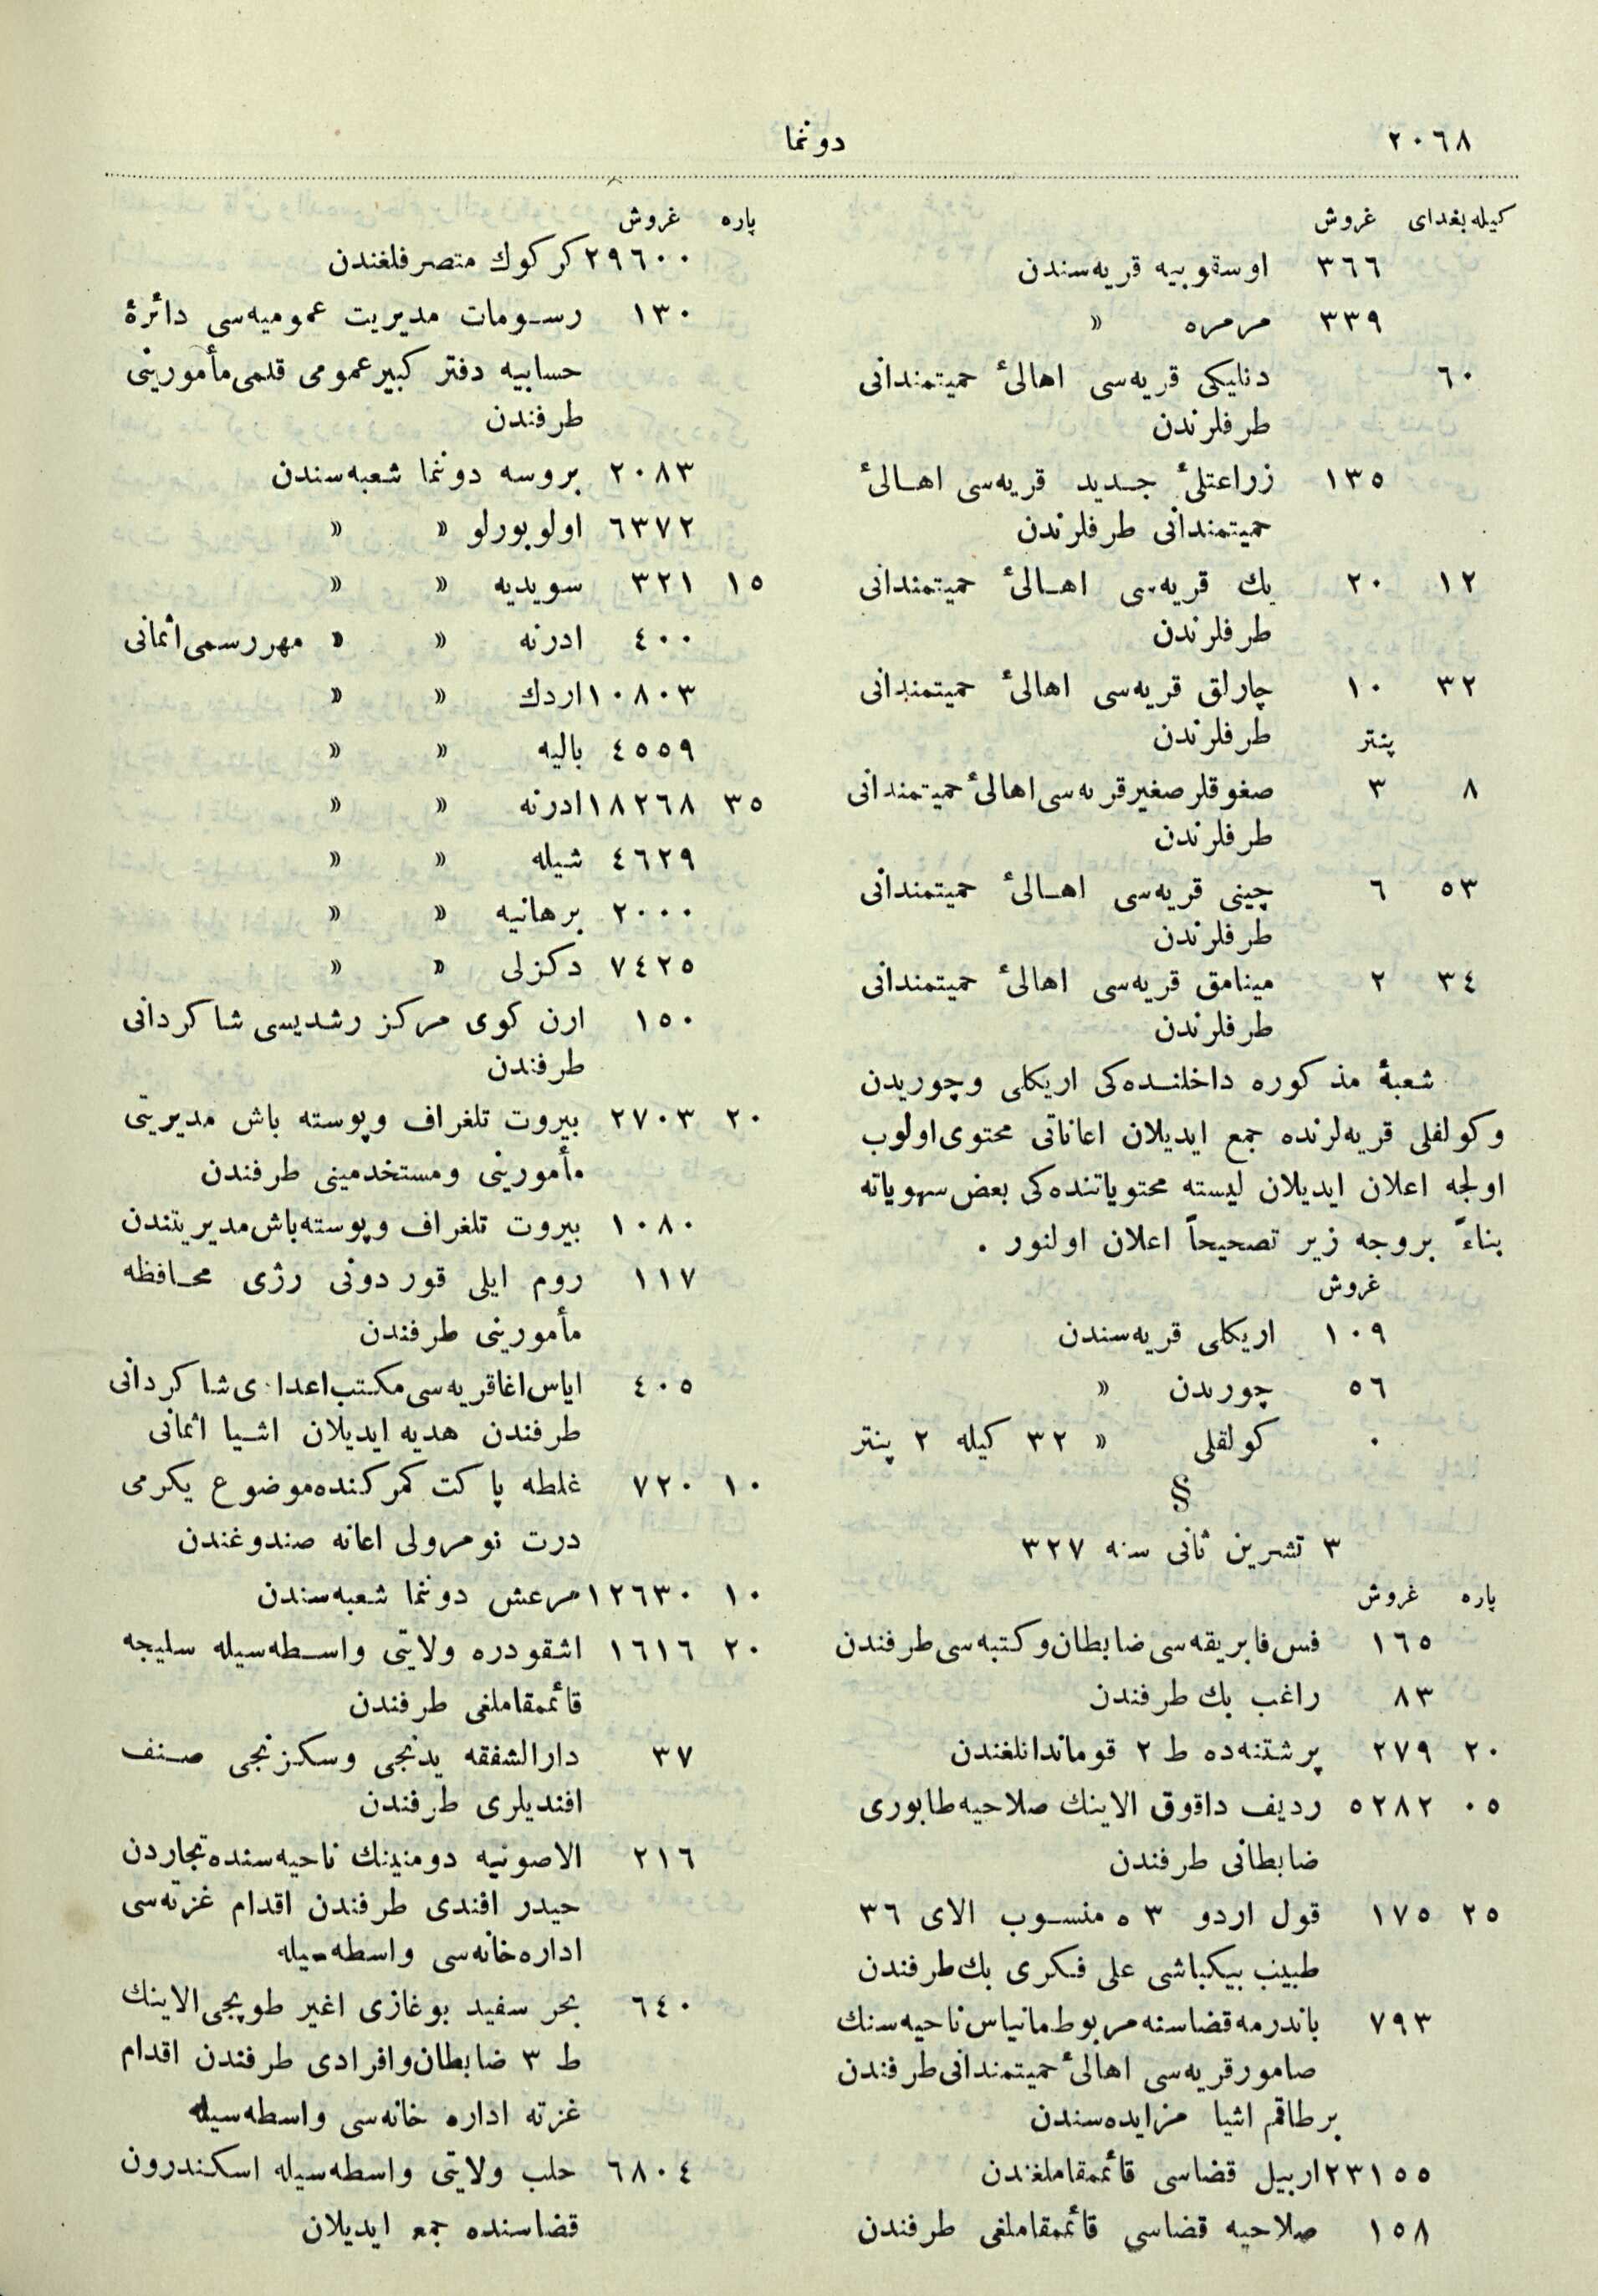 ٢٠٦٨
دوننما
كيله بغدای غروش
٣٦٦ اوسقوبيه قريه‌سندن
٣٣٩ مرمره »
٦٠ دنليكی قريه‌سی اهالئ حميتمندانی
طرفلرندن
١٣٥ زراعتلئ جديد قريه‌سی اهالئ
حميتمندانی طرفلرندن
١٢ ٢٠ يك قريه‌سی اهالئ حميتمندانی
طرفلرندن
٣٢ ١٠ چارلق قريه‌سی اهالئ حميتمندانی
پنتر طرفلرندن
٨ ٣ صغوقلر صغير قريه‌سی اهالئ حميتمندانی
طرفلرندن
٥٣ ٦ چينی قريه‌سی اهالئ حميتمندانی
طرفلرندن
٣٤ ٢ مينامق قريه‌سی اهالئ حميتمندانی
طرفلرندن
شعبهٔ مذكوره داخلنده‌كی اريكلی وچوريدن
وكولفلی قريه‌لرنده جمع ايديلان اعاناتی محتوی اولوب
اولجه اعلان ايديلان ليسته محتوياتنده‌كی بعض سهوياته
بناءً بروجه زير تصحيحاً اعلان اولنور .
غروش
١٠٩ اريكلی قريه‌سندن
٥٦ چوريدن »
٠ كولفلی » ٣٢ كيله ٢ پنتر
§
٣ تشرين ثانی سنه ٣٢٧
پاره غروش
١٦٥ فس فابريقه‌سی ضابطان وكتبه‌سی طرفندن
٨٣ راغب بك طرفندن
٢٠ ٢٧٩ پرشتنه‌ده ط ٢ قوماندانلغندن
٠٥ ٥٢٨٢ رديف داقوق الاينك صلاحيه طابوری
ضابطانی طرفندن
٢٥ ١٧٥ قول اردو ٣ ه منسوب الای ٣٦
طبيب بيكباشی علی فكری بك طرفندن
٧٩٣ باندرمه قضاسنه مربوط مانياس ناحيه‌سنك
صامور قريه‌سی اهالئ حميتمندانی طرفندن
برطاقم اشيا مزايده‌سندن
٢٣١٥٥ اربيل قضاسی قائممقاملغندن
١٥٨ صلاحيه قضاسی قائممقاملغی طرفندن
پاره غروش
٢٩٦٠٠ كركوك متصرفلغندن
١٣٠ رسومات مديريت عموميه‌سی دائرهٔ
حسابيه دفتر كبير عمومی قلمی مأمورينی
طرفندن
٢٠٨٣ بروسه دوننما شعبه‌سندن
٦٣٧٢ اولوبورلو » »
١٥ ٣٢١ سويديه » »
٤٠٠ ادرنه » » مهر رسمی اثمانی
١٠٨٠٣ اردك » »
٤٥٥٩ باليه » »
٣٥ ١٨٢٦٨ ادرنه » »
٤٦٢٩ شيله » »
٢٠٠٠ برهانيه » »
٧٤٢٥ دكزلی » »
١٥٠ ارن كوی مركز رشديسی شاكردانی
طرفندن
٢٠ ٢٧٠٣ بيروت تلغراف وپوسته باش مديريتی
مأمورينی ومستخدمينی طرفندن
١٠٨٠ بيروت تلغراف وپوسته باش مديريتندن
١١٧ روم ايلی قوردونی رژی محافظه
مأمورينی طرفندن
٤٠٥ اياس اغا قريه‌سی مكتب اعدادی شاكردانی
طرفندن هديه ايديلان اشيا اثمانی
١٠ ٧٢٠ غلطه پاكت كمركنده موضوع يكرمی
درت نومرولی اعانه صندوغندن
١٠ ١٢٦٣٠ مرعش دوننما شعبه‌سندن
٢٠ ١٦١٦ اشقودره ولايتی واسطه‌سيله سليجه
قائممقاملغی طرفندن
٣٧ دارالشفقه يدنجی وسكزنجی صنف
افنديلری طرفندن
٢١٦ الاصونيه دومنينك ناحيه‌سنده تجاردن
حيدر افندی طرفندن اقدام غزته‌سی
اداره‌خانه‌سی واسطه‌سيله
٦٤٠ بحر سفيد بوغازی اغير طوپجی الاينك
ط ٣ ضابطان وافرادی طرفندن اقدام
غزته اداره خانه‌سی واسطه‌سيله
٦٨٠٤ حلب ولايتی واسطه‌سيله اسكندرون
قضاسنده جمع ايديلان